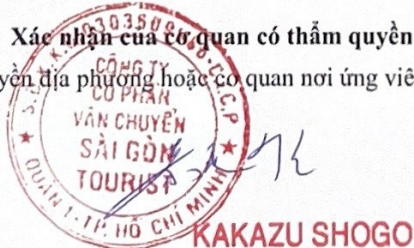 Xác nhận của cơ quan có thẩm quyền
yền địa phương hoặc cơ quan nơi ứng viê
CÔNG TY
CỔ PHẦN
VẬN CHUYỂN
SÀI GÒN
TOURIST
QUẬN 1 - TP. HỒ CHÍ MINH
KAKAZU SHOGO